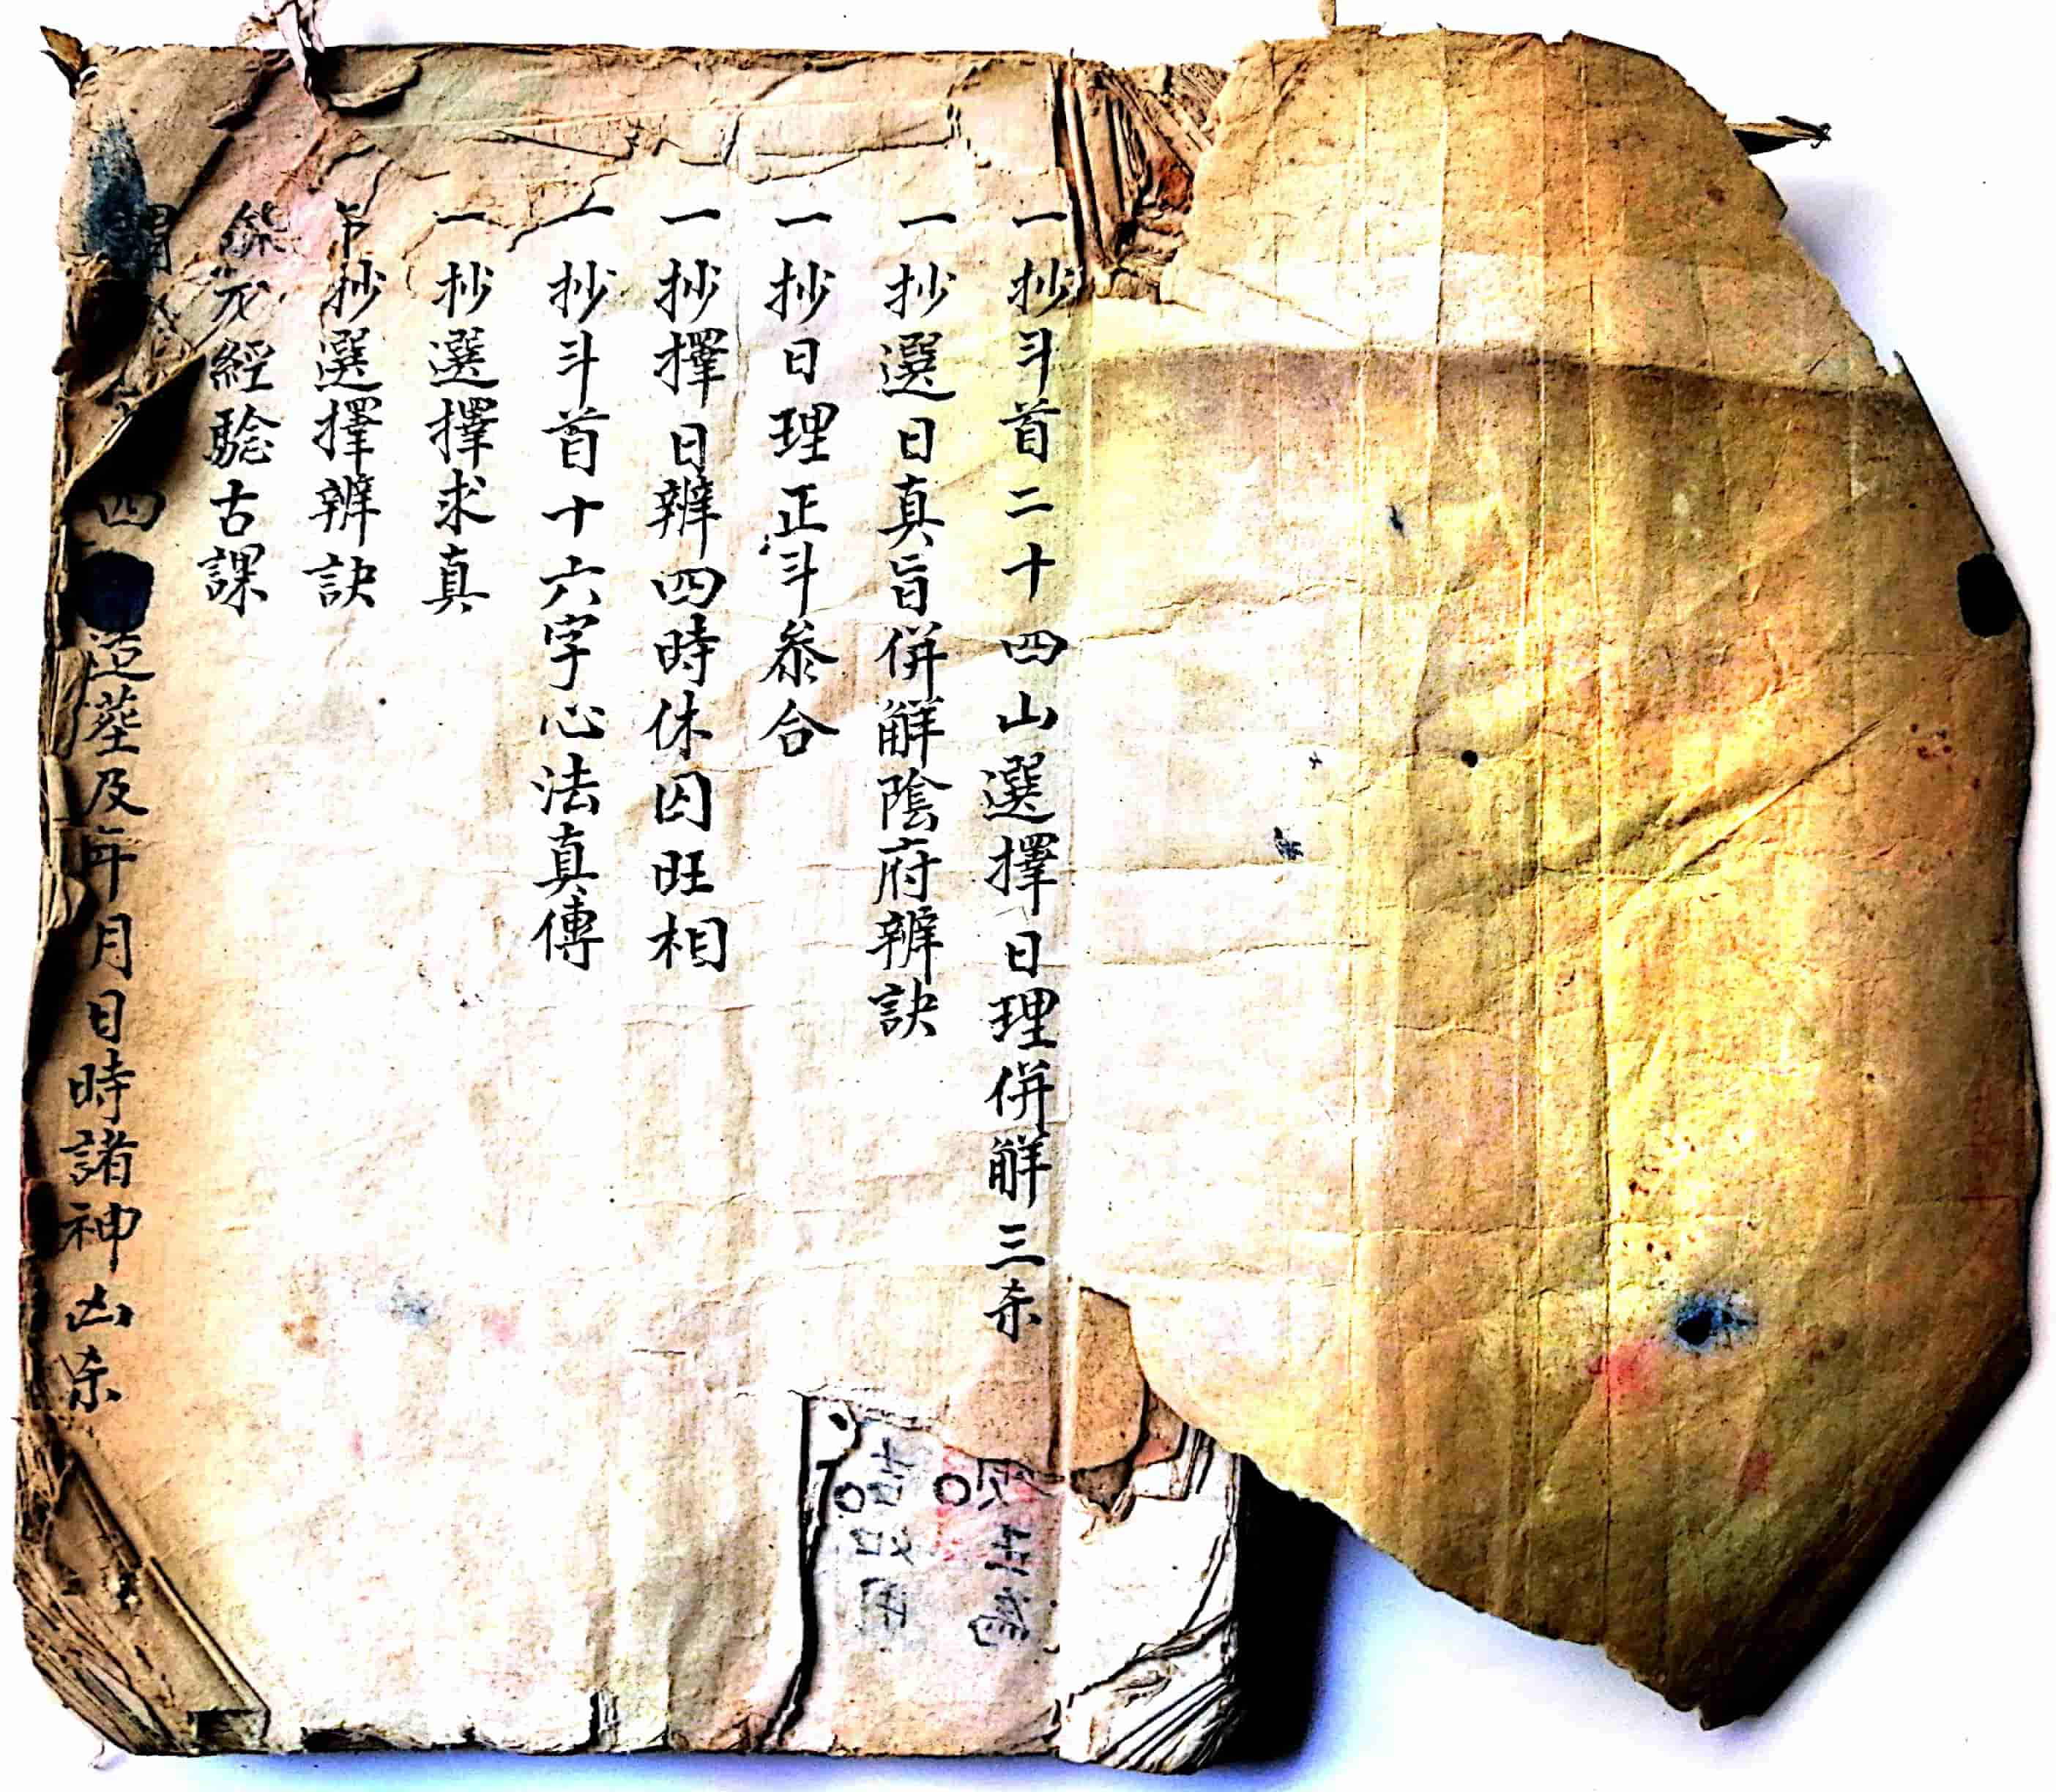 一抄斗首二十四山選擇日理併觧三杀
一抄選日真旨併觧隂府辨訣
一抄日理正斗叅合
一抄擇日辨四時休囚旺相
一抄斗首十六字心法真傳
一抄選擇求真
抄選擇辨訣
經騐古課
四造塟及年月日時諸神凶杀